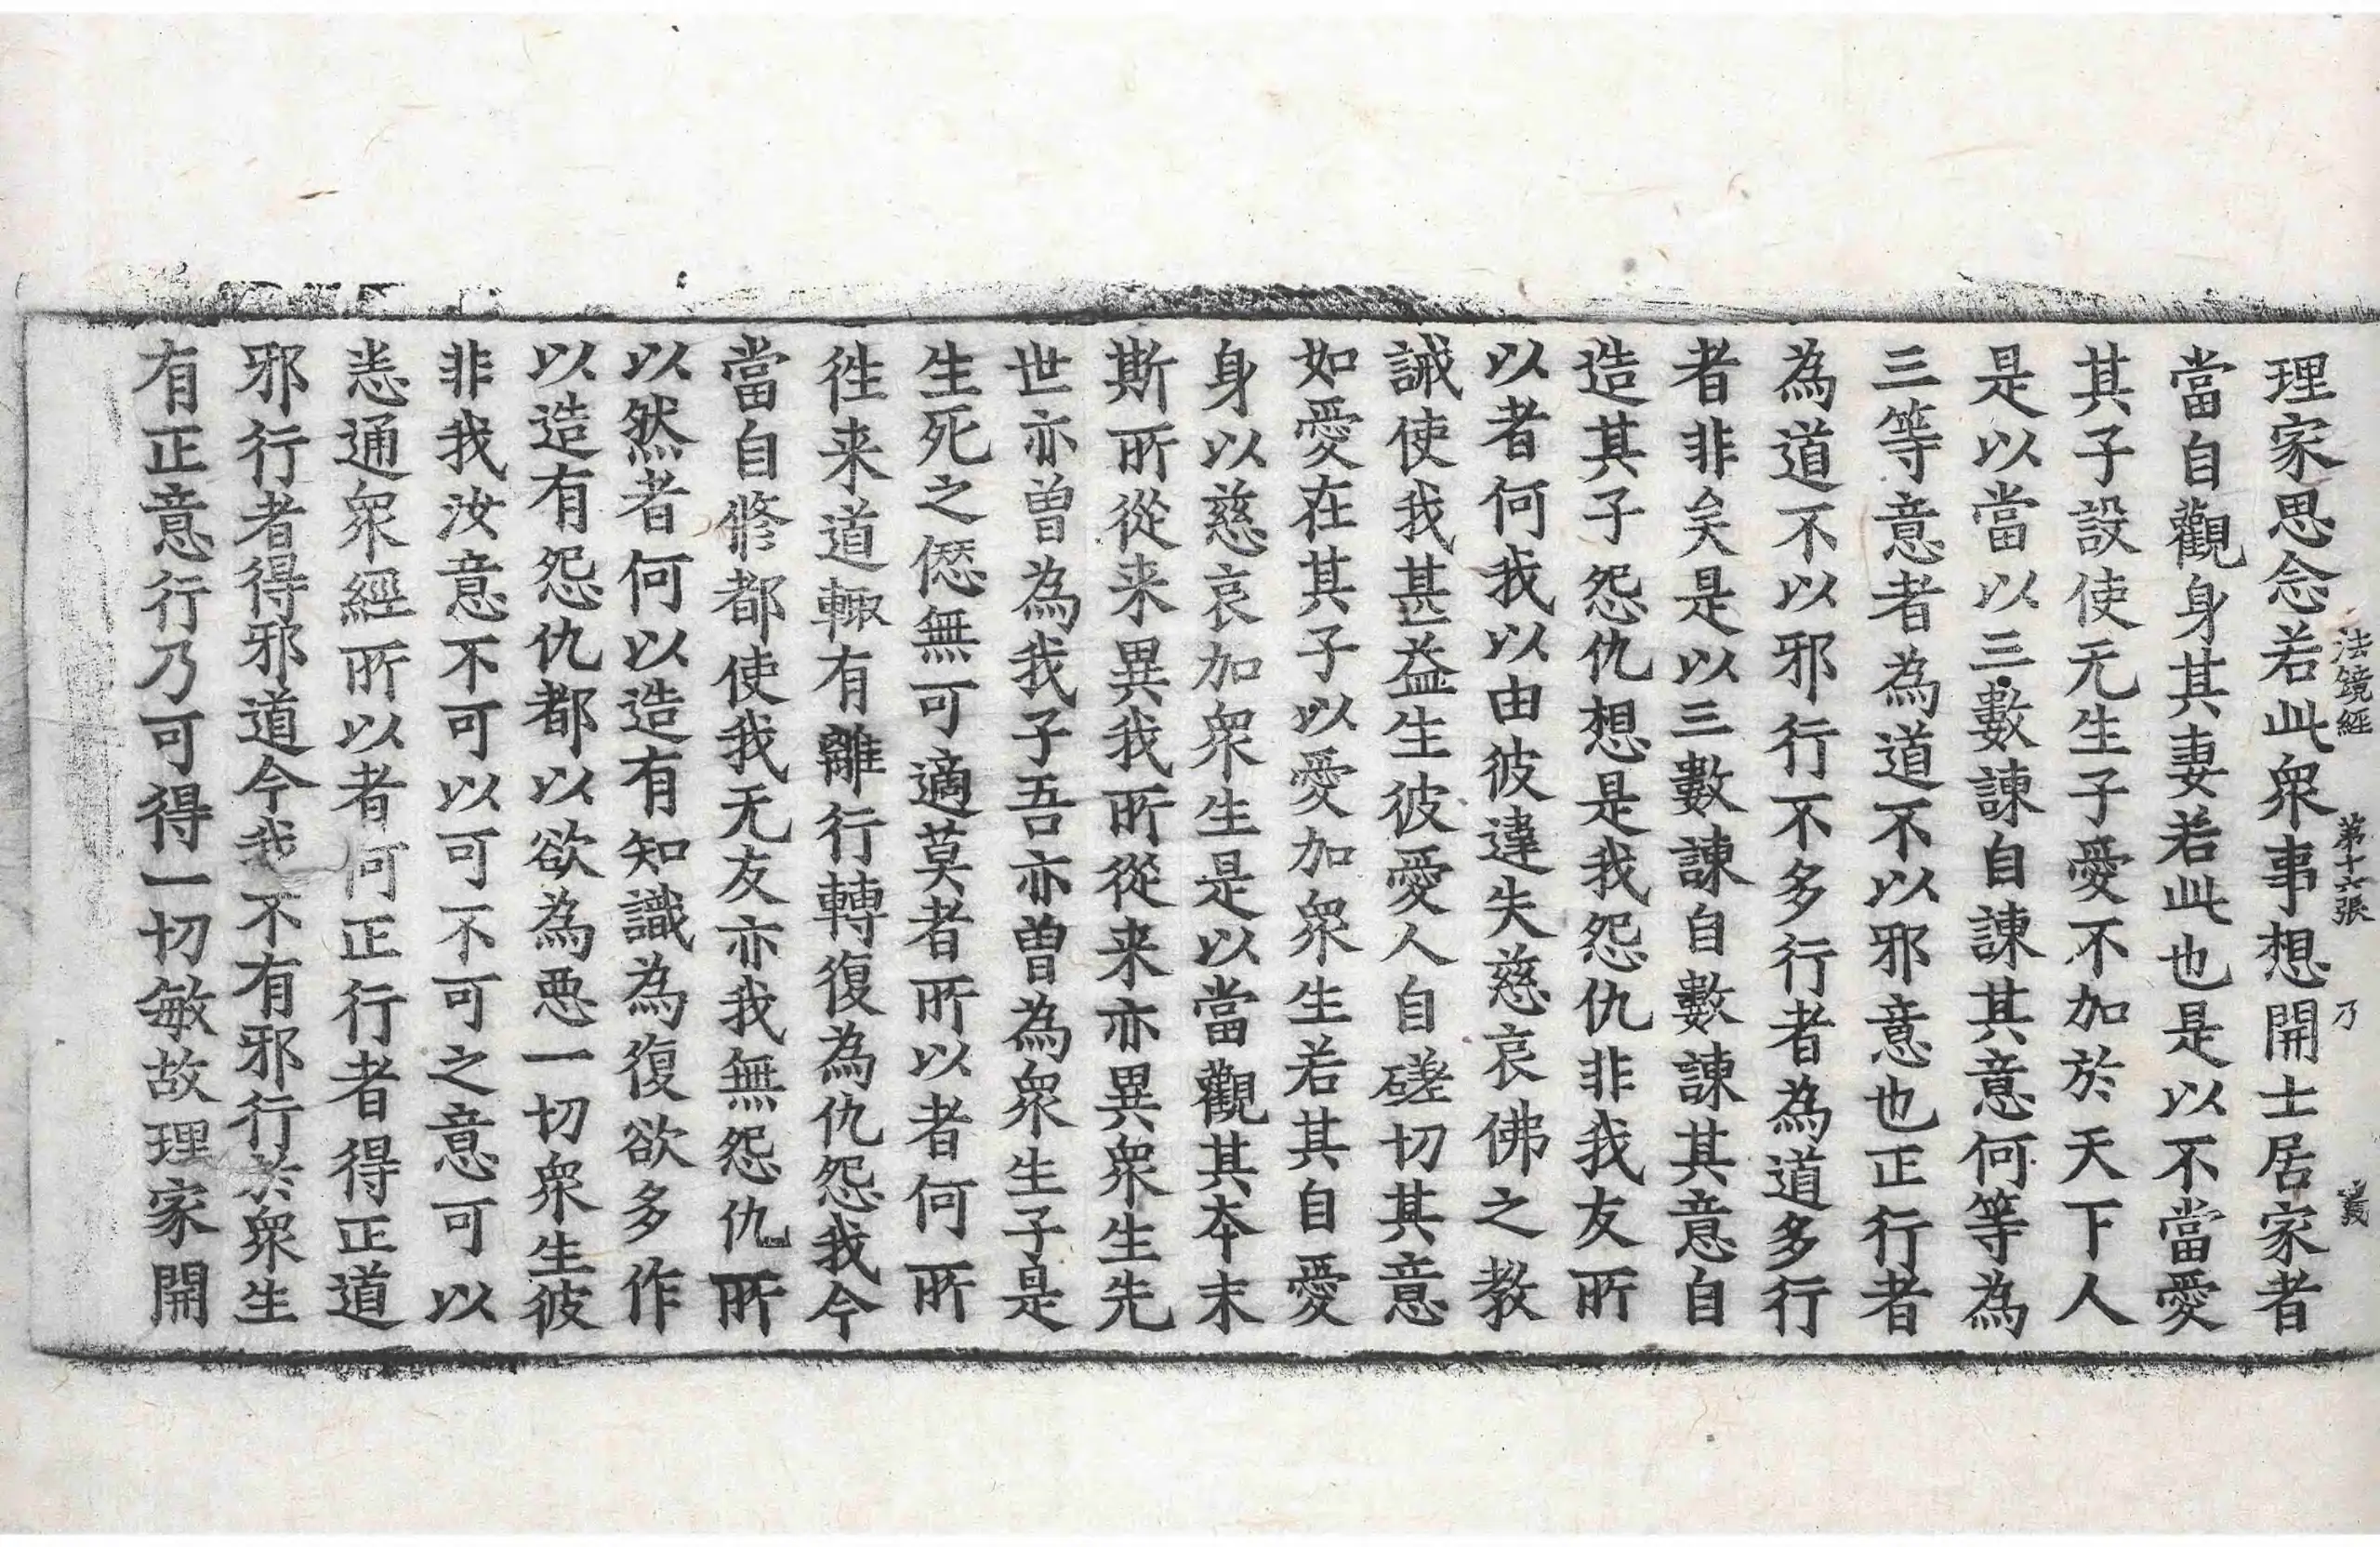 法鏡經 第十六張 乃
理家思念若此衆事想開士居家者
當自觀身其妻若此也是以不當愛
其子設使无生子愛不加於天下人
是以當以三數諫自諫其意何等為
三等意者為道不以邪意也正行者
為道不以邪行不多行者為道多行
者非矣是以三數諫自數諫其意自
造其子怨仇想是我怨仇非我友所
以者何我以由彼違失慈哀佛之教
誡使我甚益生彼愛人自磋切其意
如愛在其子以愛加衆生若其自愛
身以慈哀加衆生是以當觀其夲末
斯所從来異我所從来亦異衆生先
世亦曽為我子吾亦曽為衆生子是
生死之𠎝無可適莫者所以者何所
徃来道輙有離行轉復為仇怨我今
當自修都使我无友亦我無怨仇所
以然者何以造有知識為復欲多作
以造有怨仇都以欲為惡一切衆生彼
非我汝意不可以可不可之意可以
恚通衆經所以者何正行者得正道
邪行者得邪道今我不有邪行於衆生
有正意行乃可得一切敏故理家開